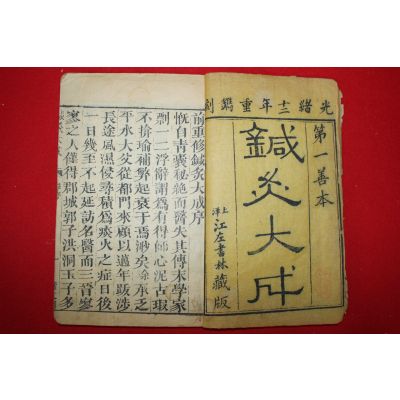 光緒三年重鐫刻
第一善本
鍼灸大成
上洋江左書林藏版
前重修鍼灸大成序
慨自青囊秘絶而醫失其傳末學家
剽一二浮辭謂為有得師心泥古瑕
不揜瑜補弊起衰于焉渺矣余承乏
平水大父從都門來顧以邁年跋涉
長途風濕侵尋積為痰火之症日後
一日幾至不起延訪名醫而三晉寥
寥乏人僅得郡城郭子洪洞玉子多